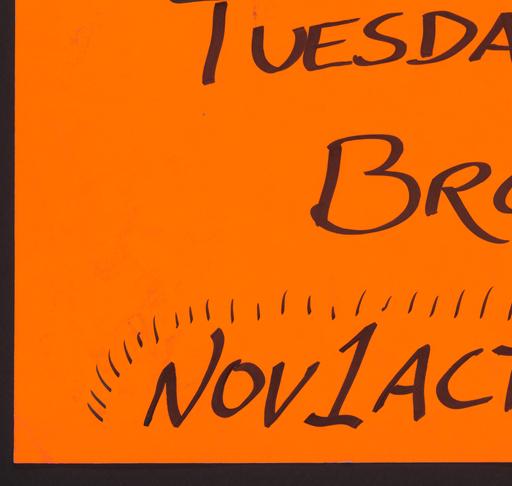 TUESDA
BRO
NOV1ACT